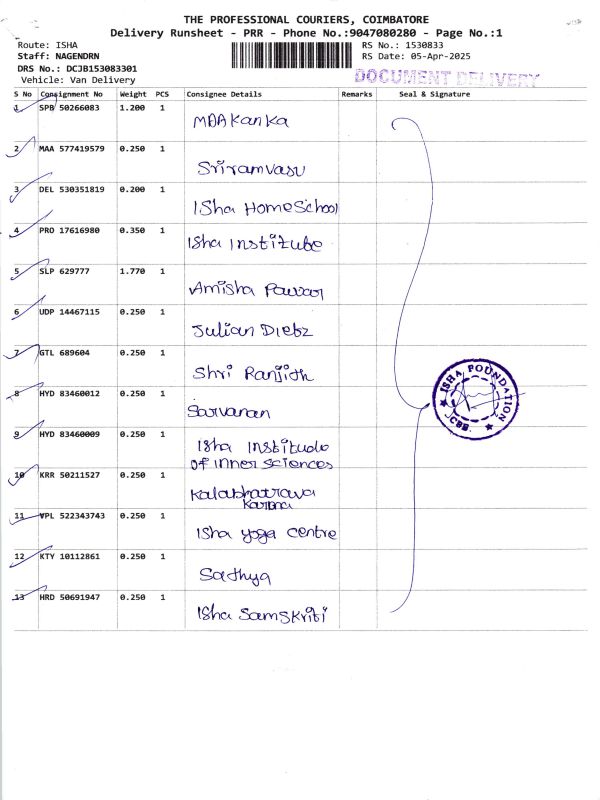 THE PROFESSIONAL COURIERS, COIMBATORE
Delivery Runsheet - PRR - Phone No.:9047080280 - Page No.:1
Route: ISHA RS No.: 1530833
Staff: NAGENDRN RS Date: 05-Apr-2025
DRS No.: DCJB153083301
Vehicle: Van Delivery DOCUMENT DELIVERY
S No Consignment No Weight PCS Consignee Details Remarks Seal & Signature
1 SPB 50266083 1.200 1
MBA Kanka
2 MAA 577419579 0.250 1
Sriramvasu
3 DEL 530351819 0.200 1
ISha HomeSchool
4 PRO 17616980 0.350 1
Isha Institube
5 SLP 629777 1.770 1
Amisha Pawar
6 UDP 14467115 0.250 1
Julian Dietz
7 GTL 689604 0.250 1
Shri Ranjith
8 HYD 83460012 0.250 1
Sarvanan
ISHA FOUNDATION
CBE.
9 HYD 83460009 0.250 1
Isha Institude
of inner sciences
10 KRR 50211527 0.250 1
Kalabhairava
Karma
11 VPL 522343743 0.250 1
Isha yoga centre
12 KTY 10112861 0.250 1
Sathya
13 HRD 50691947 0.250 1
Isha SamSkriti